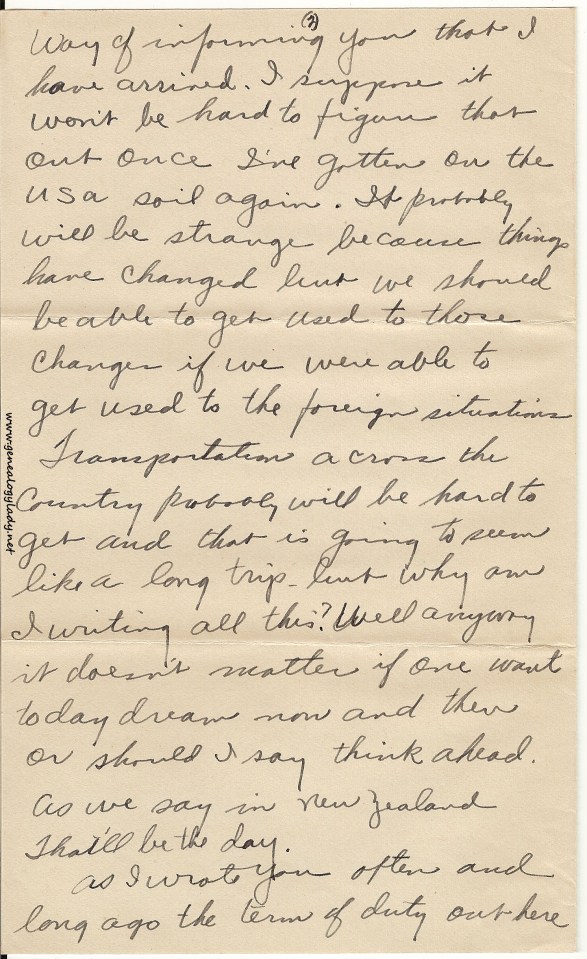 (2)
way of informing you that I
have arrived. I suppose it
won't be hard to figure that
out once I've gotten on the
USA soil again. It probably
will be strange because things
have changed but we should
be able to get used to those
changes if we were able to
get used to the foreign situations
Transportation across the
Country probably will be hard to
get and that is going to seem
like a long trip - but why am
I writing all this? Well anyway
it doesn't matter if one want
to day dream now and then
or should I say think ahead.
as we say in New Zealand
That'll be the day.
as I wrote you often and
long ago the term of duty out here
www.genealogylady.net